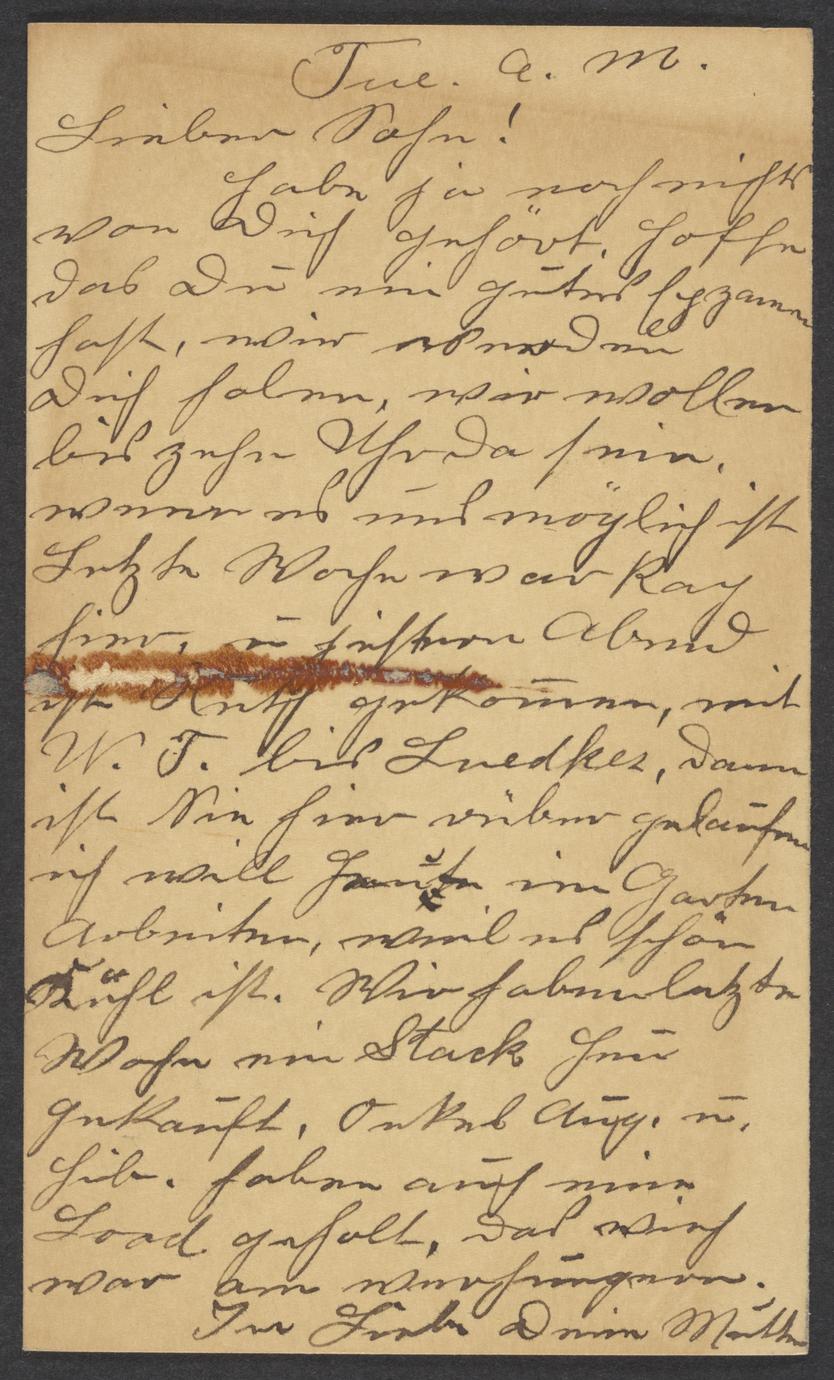 Tue. a. m.
Lieber Sohn!
Habe ja noch nichts
von Dich gehört, hoffe
das Du ein gutes Egzamen
hast, wir werden
Dich holen, wir wollen
bis zehn Uhr da sein,
wenn es uns möglich ist
Letzte Woche war Ray
hier, u jestern Abend
ist Ruth gekommen, mit
W. T. bis Luedkes, dann
ist Sie hier rüber gelaufen
ich will heute im Garten
Arbeiten, weil es schön
Kühl ist. Wir haben letzte
Woche ein Stack Heu
gekauft, Onkel Aug. u.
Hib. haben auch eine
Load geholt, das Vieh
war am verhungern.
In Liebe Deine Mutter